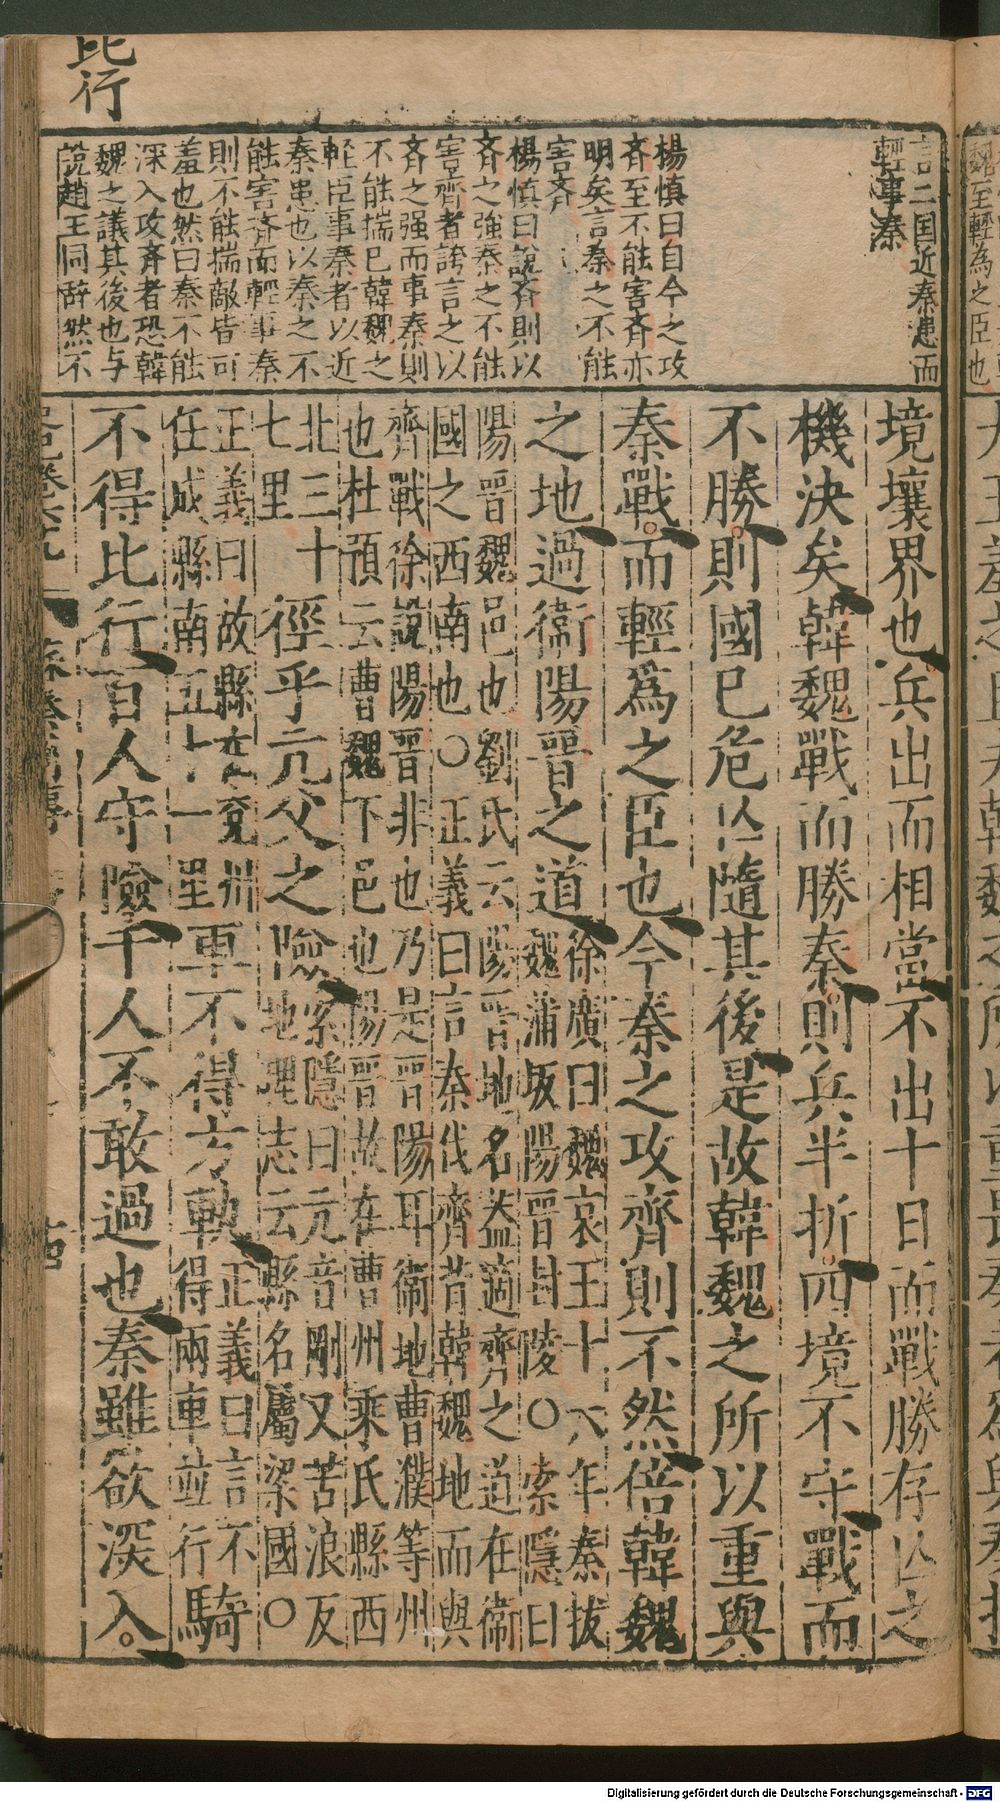 比行
言二国近秦患而
輕事秦
楊慎曰自今之攻
齐至不能害齐亦
明矣言秦之不能
害齐
楊慎曰說齐則以
齐之強秦之不能
害齊者誇言之以
齐之强而事秦則
不能揣已韓魏之
輕臣事秦者以近
秦患也以秦之不
能害齐而輕事秦
則不能揣敵皆可
羞也然曰秦不能
深入攻齐者恐韓
魏之議其後也与
說趙王同辞然不
境壤界也兵出而相當不出十日而戰勝存亾之
機決矣韓魏戰而勝秦則兵半折四境不守戰而
不勝則國已危亾隨其後是故韓魏之所以重與
秦戰而輕爲之臣也今秦之攻齊則不然倍韓魏
之地過衞陽晉之道
徐廣曰魏哀王十六年秦拔
魏蒲坂陽晉封陵〇索隱曰
陽晉魏邑也劉氏云陽晉地名蓋適齊之道在衞
國之西南也〇正義曰言秦伐齊背韓魏地而與
齊戰徐說陽晉非也乃是晉陽耳衞地曹濮等州
也杜預云曹魏下邑也陽晉故在曹州乘氏縣西
北三十
七里
徑乎亢父之險
索隱曰亢音剛又苦浪反
地理志云縣名屬梁國〇
正義曰故縣在兗州
任成縣南五十一里
車不得方軌
正義曰言不
得兩車並行
騎
不得比行百人守險千人不敢過也秦雖欲深入
魏至輕為之臣也
Digitalisierung gefördert durch die Deutsche Forschungsgemeinschaft - DFG